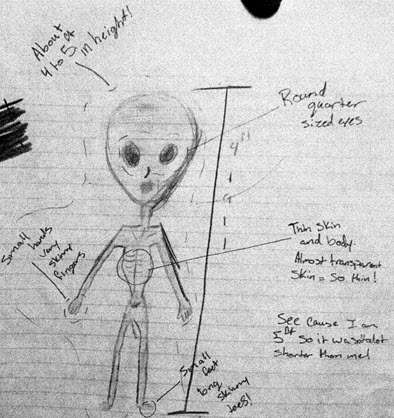 About
4 to 5 ft
in height!
Round
quarter
sized eyes
Small hands
very skinny
fingers
Thin skin
and body.
Almost transparent
skin = so thin!
See cause I am
5 ft so it was
shorter than me!
Small feet
long skinny
toes!